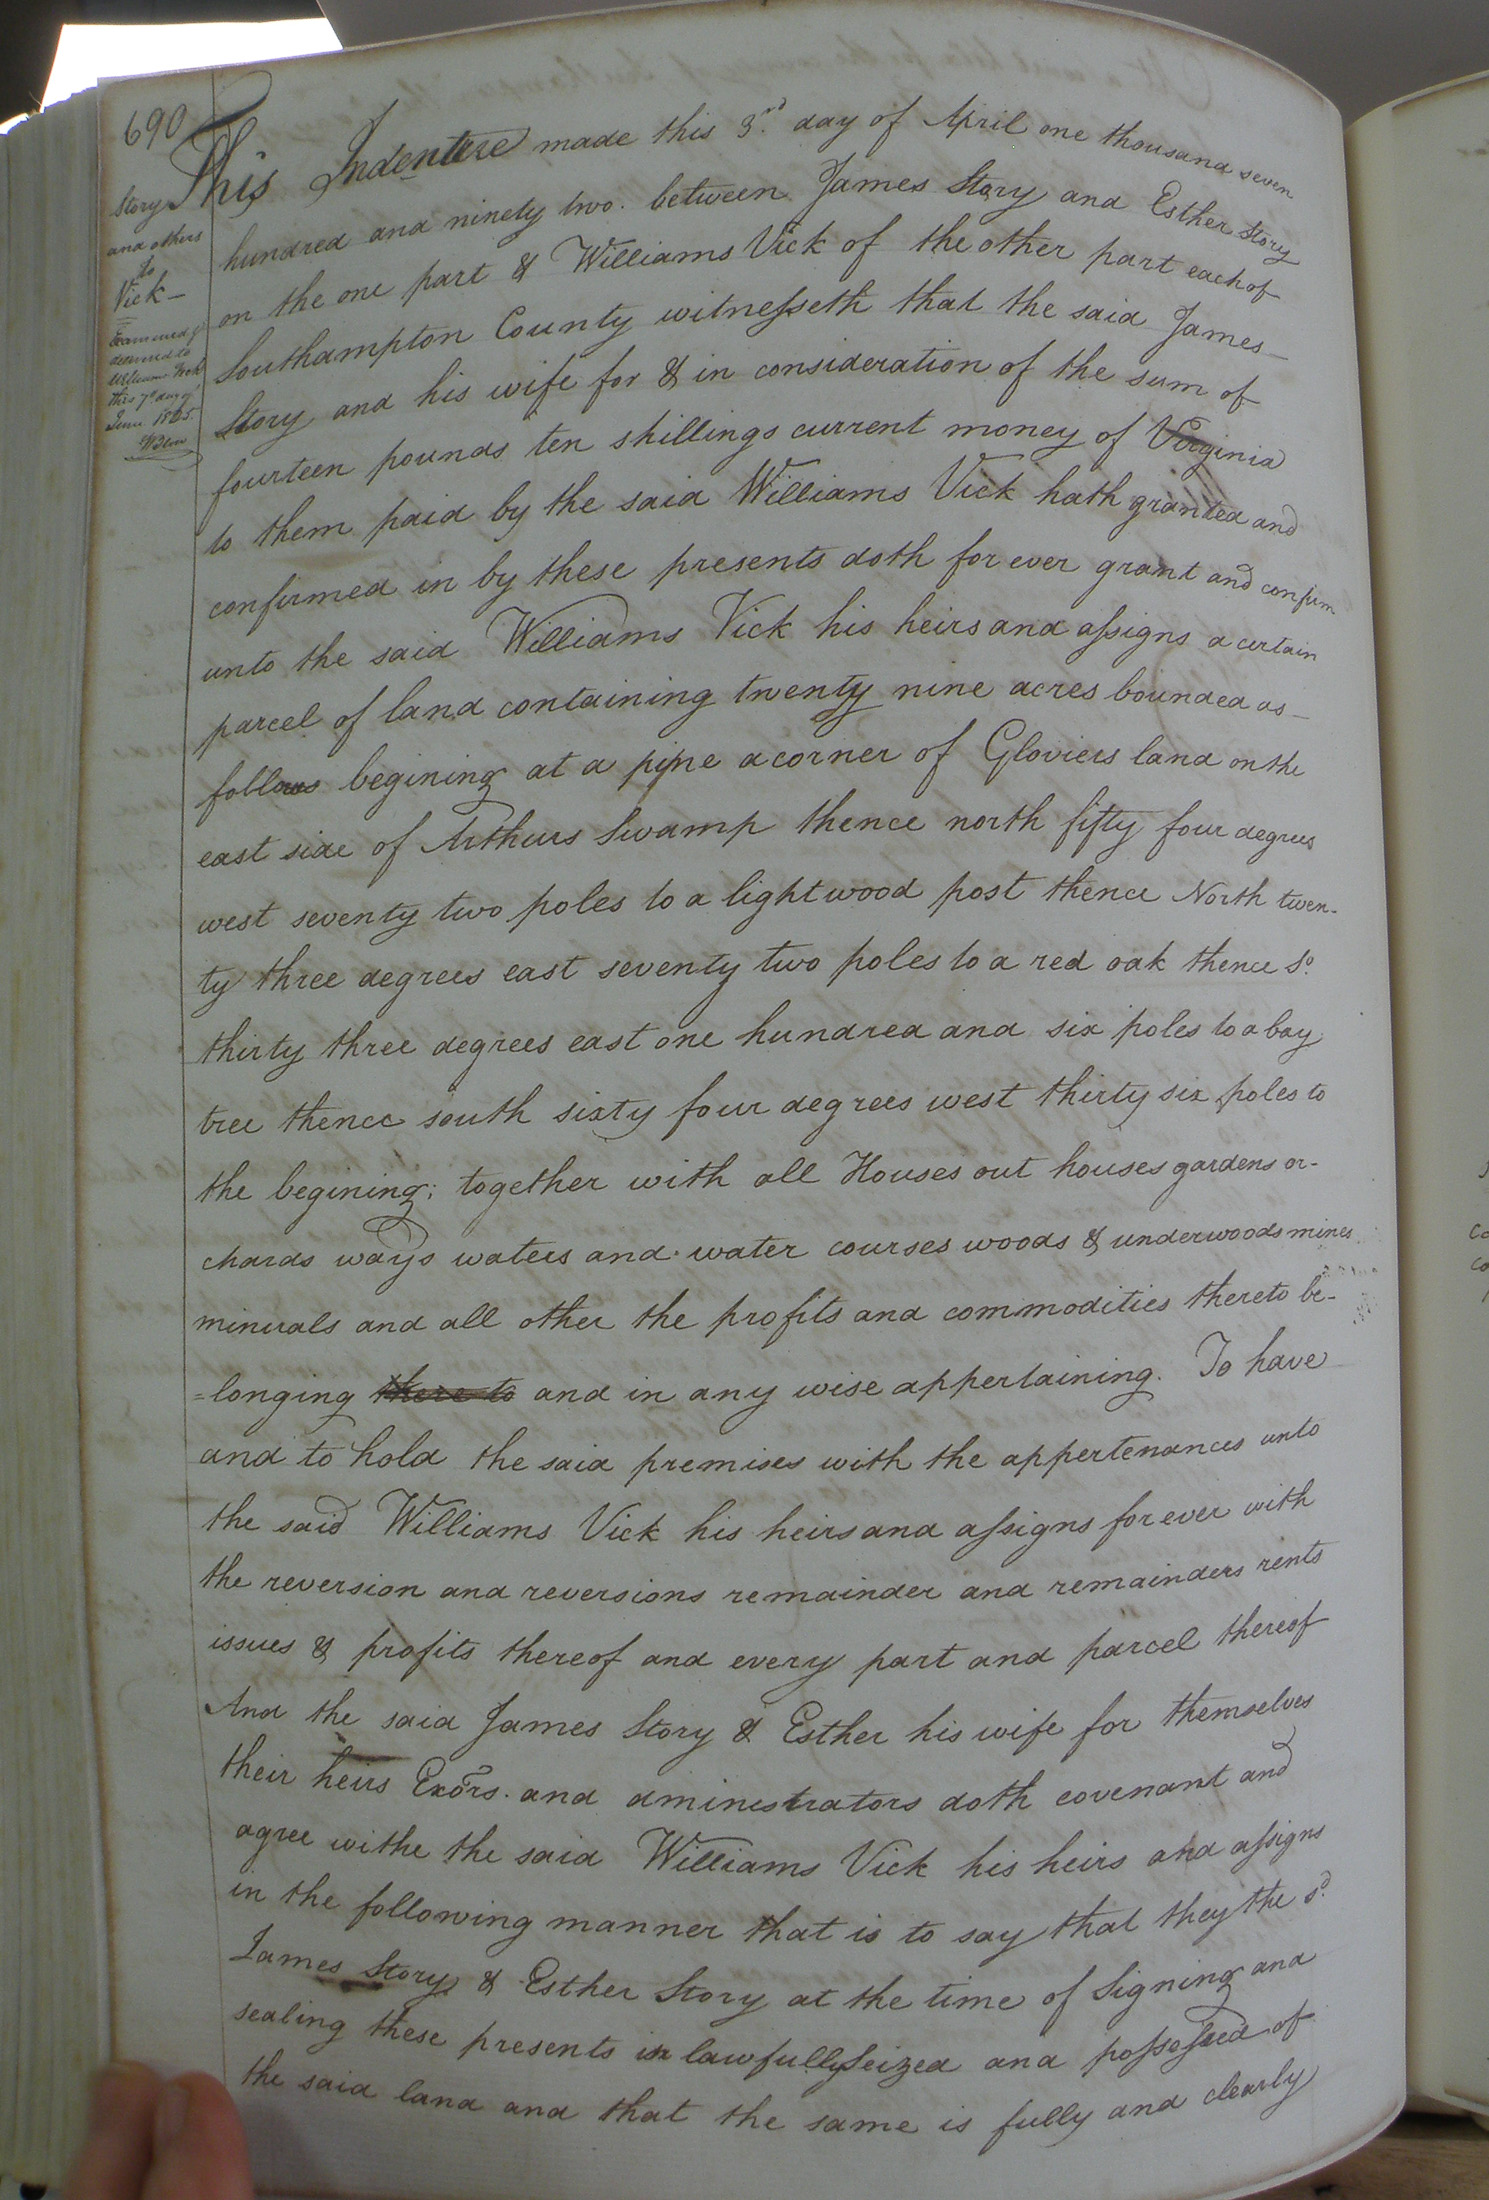 690
Story
and others
to
Vick
Examined &
delivered to
Williams Vick
this 7th day of
June 1805.
This Indenture made this 3rd. day of April one thousand seven
hundred and ninety two. between James Story and Esther Story
on the one part & Williams Vick of the other part each of
Southampton County witnesseth that the said James
Story and his wife for & in consideration of the sum of
fourteen pounds ten shillings current money of Virginia
to them paid by the said Williams Vick hath granted and
confirmed in by these presents doth for ever grant and confirm
unto the said Williams Vick his heirs and assigns a certain
parcel of land containing twenty nine acres bounded as
follows begining at a pine a corner of Gloviers land on the
east side of Arthurs Swamp thence north fifty four degrees
west seventy two poles to a lightwood post thence North twen-
ty three degrees east seventy two poles to a red oak thence So.
thirty three degrees east one hundred and six poles to a bay
tree thence south sixty four degrees west thirty six poles to
the begining; together with all Houses out houses gardens or-
chards ways waters and water courses woods & underwoods mines
minerals and all other the profits and commodities thereto be-
=longing there to and in any wise appertaining. To have
and to hold the said premises with the appertenances unto
the said Williams Vick his heirs and assigns for ever with
the reversion and reversions remainder and remainders rents
issues & profits thereof and every part and parcel thereof
And the said James Story & Esther his wife for themselves
their heirs Exors. and aministrators doth covenant and
agree withe the said Williams Vick his heirs and assigns
in the following manner that is to say that they the sd.
James Story & Esther Story at the time of Signing and
sealing these presents is lawfully Seized and possessed of
the said land and that the same is fully and clearly